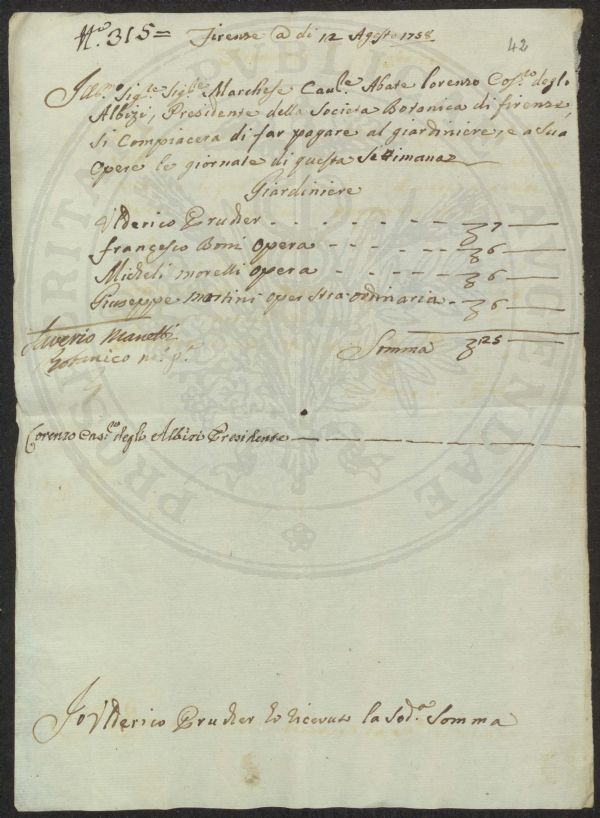 N.º 315=
Firenze a di 12 Agosto 1758
42
Ill.mo Sig.re Sig.re Marchese Cav.re Abate Lorenzo Cos.mo degli
Albizi, Presidente della Societa Botanica di firenze,
si Compiacera di far pagare al giardiniere, e a sua
opere le giornate di questa Settimana
Giardiniere
Ulderico Prucker - - - - - - - 7 —
francesco Boni Opera - - - - - 6 —
Micheli morelli opera - - - - 6 —
Giuseppe martini opera straordinaria - 6 —
Saverio Manetti
Botanico m. p.
Somma 25 —
Lorenzo Cas.to degli Albizi Presidente
Io Ulderico Prucker ho ricevuto la Sod.a Somma
PUBLICAE
PROSPERITATI